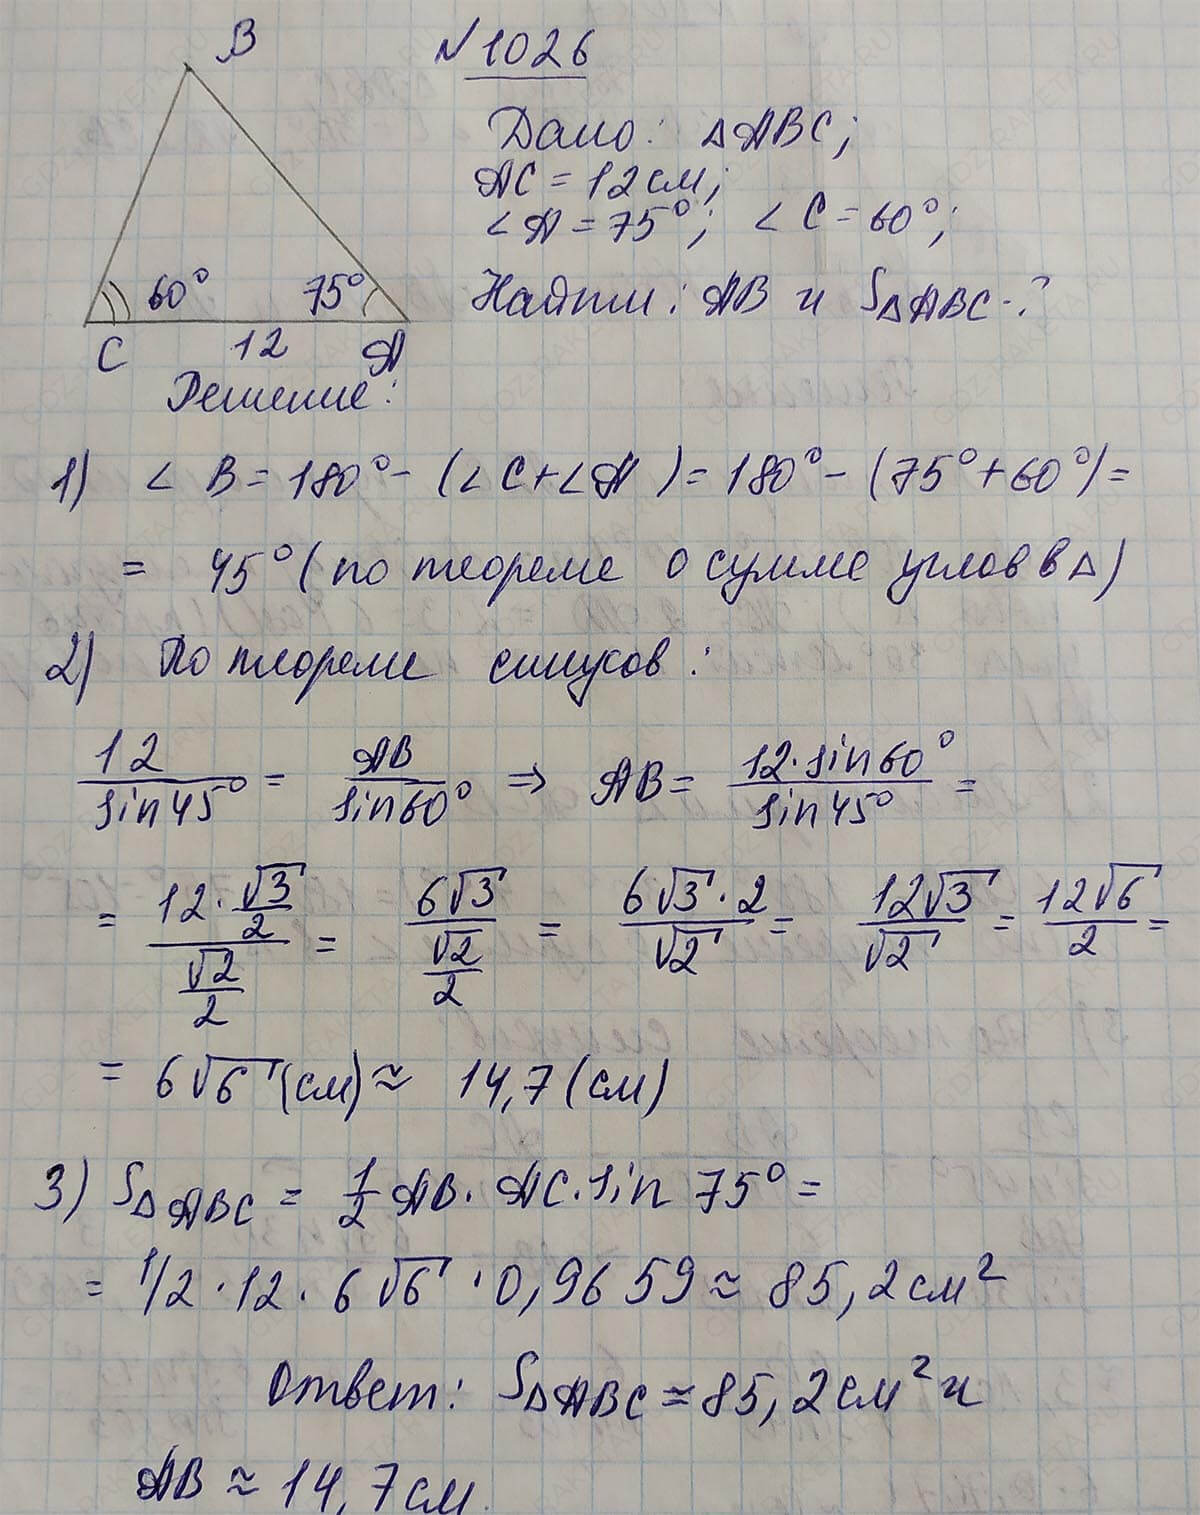 B
№1026
Дано: △ABC;
AC = 12 см;
∠A = 75°; ∠C = 60°;
60° 75°
Найти: AB и S△ABC - ?
C 12 A
Решение:
1) ∠B = 180° - (∠C + ∠A) = 180° - (75° + 60°) =
= 45° (по теореме о сумме углов в △)
2) По теореме синусов:
12/sin45° = AB/sin60° ⇒ AB = 12·sin60°/sin45° =
= (12·√3/2)/(√2/2) = 6√3/(√2/2) = 6√3·2/√2 = 12√3/√2 = 12√6/2 =
= 6√6 (см) ≈ 14,7 (см)
3) S△ABC = 1/2 AB · AC · sin 75° =
= 1/2 · 12 · 6√6 · 0,9659 ≈ 85,2 см²
Ответ: S△ABC ≈ 85,2 см² и
AB ≈ 14,7 см.